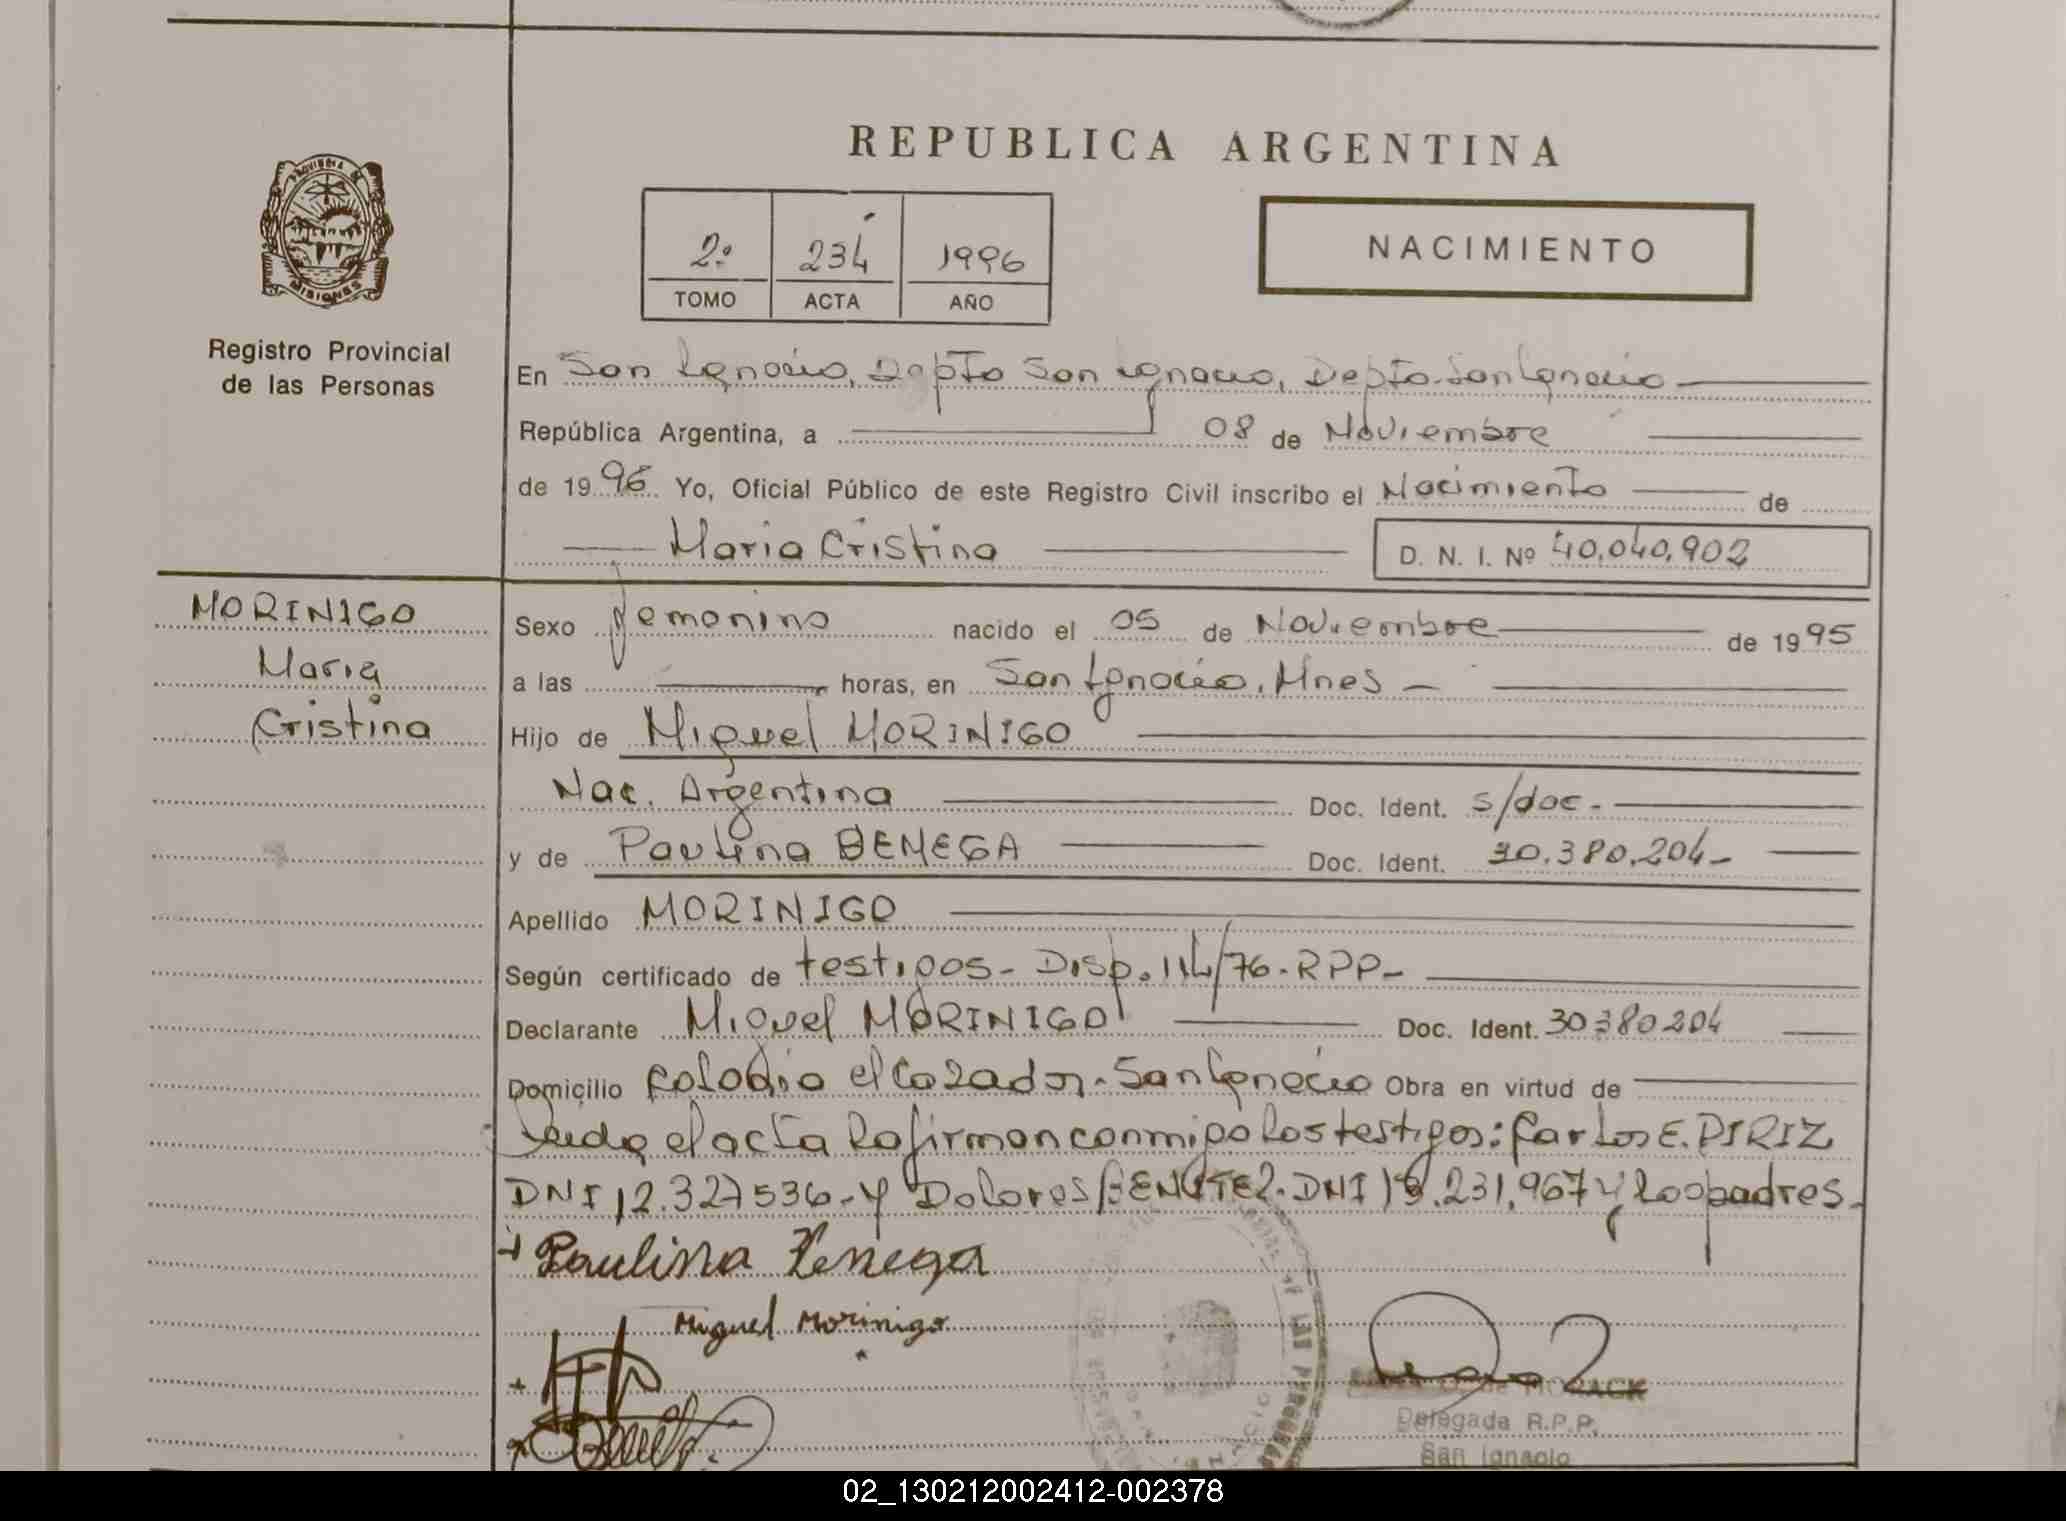 REPUBLICA ARGENTINA
PROVINCIA DE
MISIONES
2º 234 1996
TOMO ACTA AÑO
NACIMIENTO
Registro Provincial
de las Personas
En San Ignacio, Depto San Ignacio, Depto. San Ignacio
República Argentina, a 08 de Noviembre
de 1996 Yo, Oficial Público de este Registro Civil inscribo el Nacimiento de
Maria Cristina D. N. I. Nº 40.040.902
MORINIGO
Maria
Cristina
Sexo femenino nacido el 05 de Noviembre de 1995
a las horas, en San Ignacio, Mnes -
Hijo de Miguel MORINIGO
Nac. Argentina Doc. Ident. s/doc.-
y de Paulina BENEGA Doc. Ident. 30.380.204-
Apellido MORINIGO
Según certificado de testigos- Disp. 114/76- RPP-
Declarante Miguel MORINIGO Doc. Ident. 30380204
Domicilio Colonia el Cazador- San Ignacio Obra en virtud de
Leida el acta la firman conmigo los testigos: Carlos E. PIRIZ
DNI 12.327536- y Dolores BENITEZ- DNI 18.231.967 y los padres-
+ Paulina Venega
Miguel Morinigo
Delegada R.P.P.
San Ignacio
02_130212002412-002378